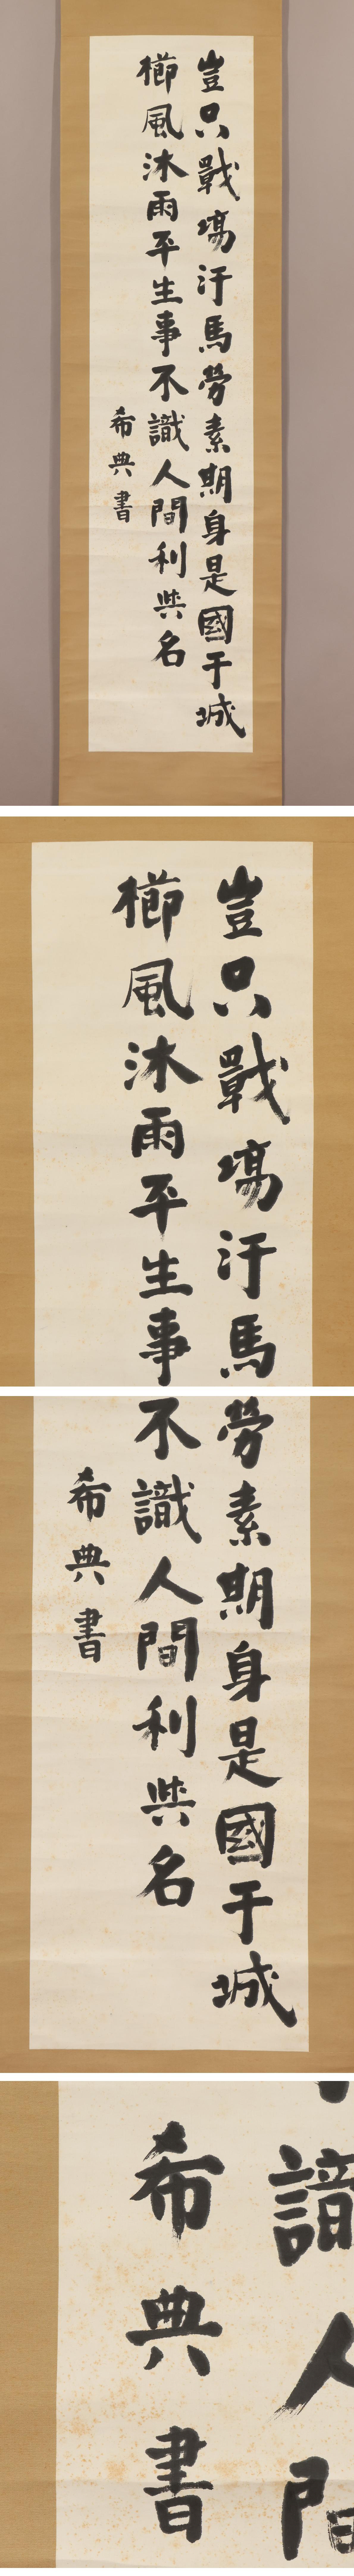 豈只戰場汗馬勞素期身是國干城
櫛風沐雨平生事不識人間利與名
希典書
豈只戰場汗馬
櫛風沐雨平生事
勞素期身是國干城
不識人間利與名
希典書
識人間
希典書